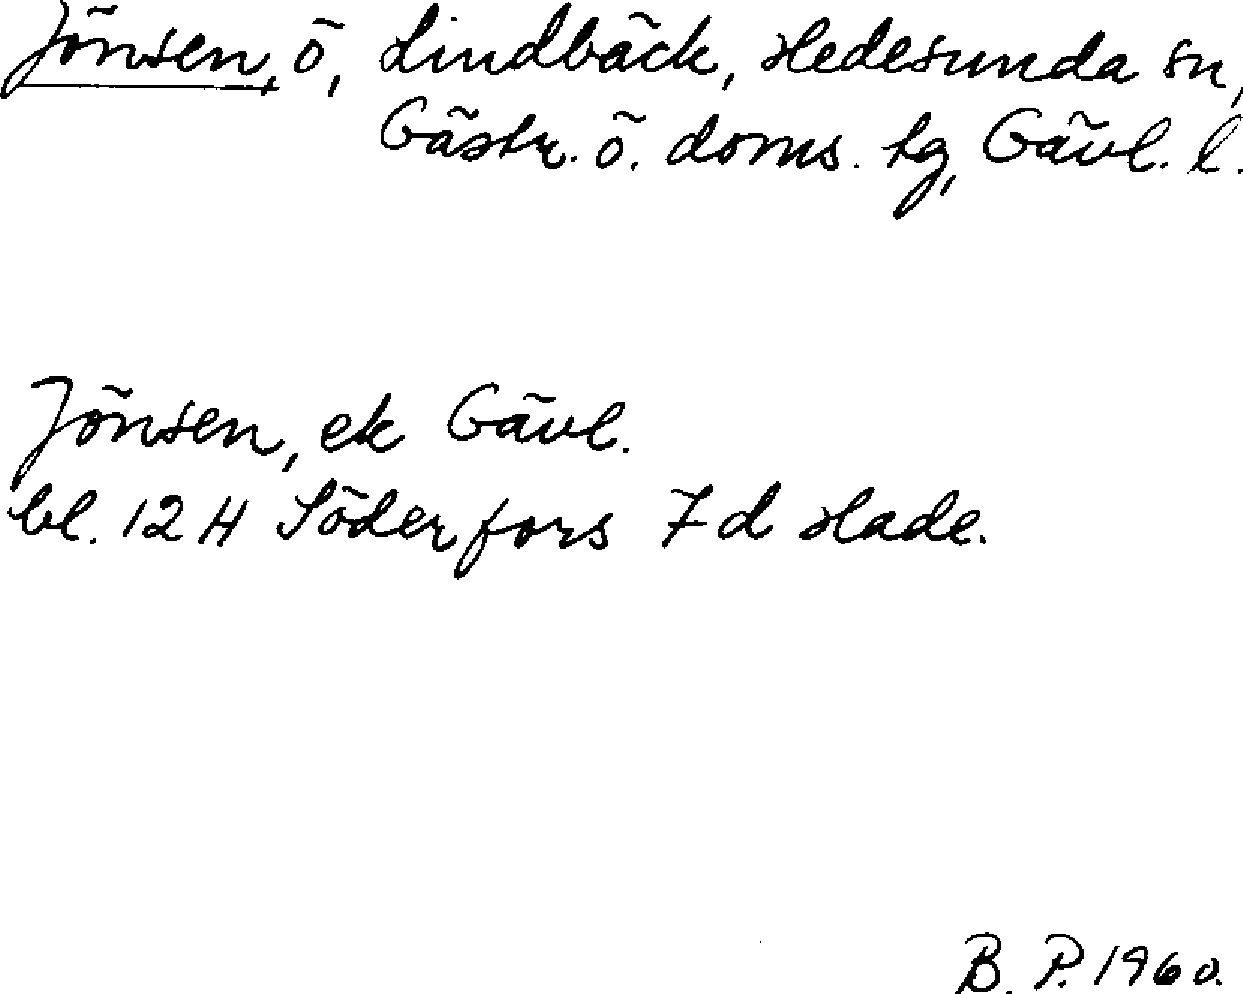 Jönsen, ö, Lindbäck, Hedesunda sn,
Gästr. ö. doms. tg, Gävl. l.
Jönsen, ek Gävl.
bl. 12 H Söderfors 7 d Hade.
B. P. 1960.